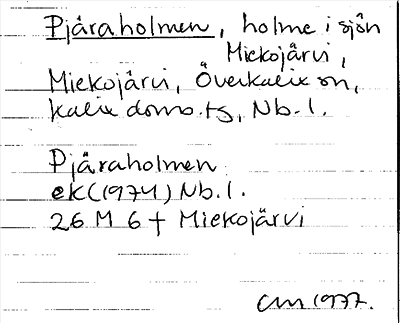 Pjäraholmen, holme i sjön
Miekojärvi,
Miekojärvi, Överkalix sn,
Kalix doms.tg, Nb. l.
Pjäraholmen
ek (1974) Nb. l.
26 M 6 f Miekojärvi
CM 1977.